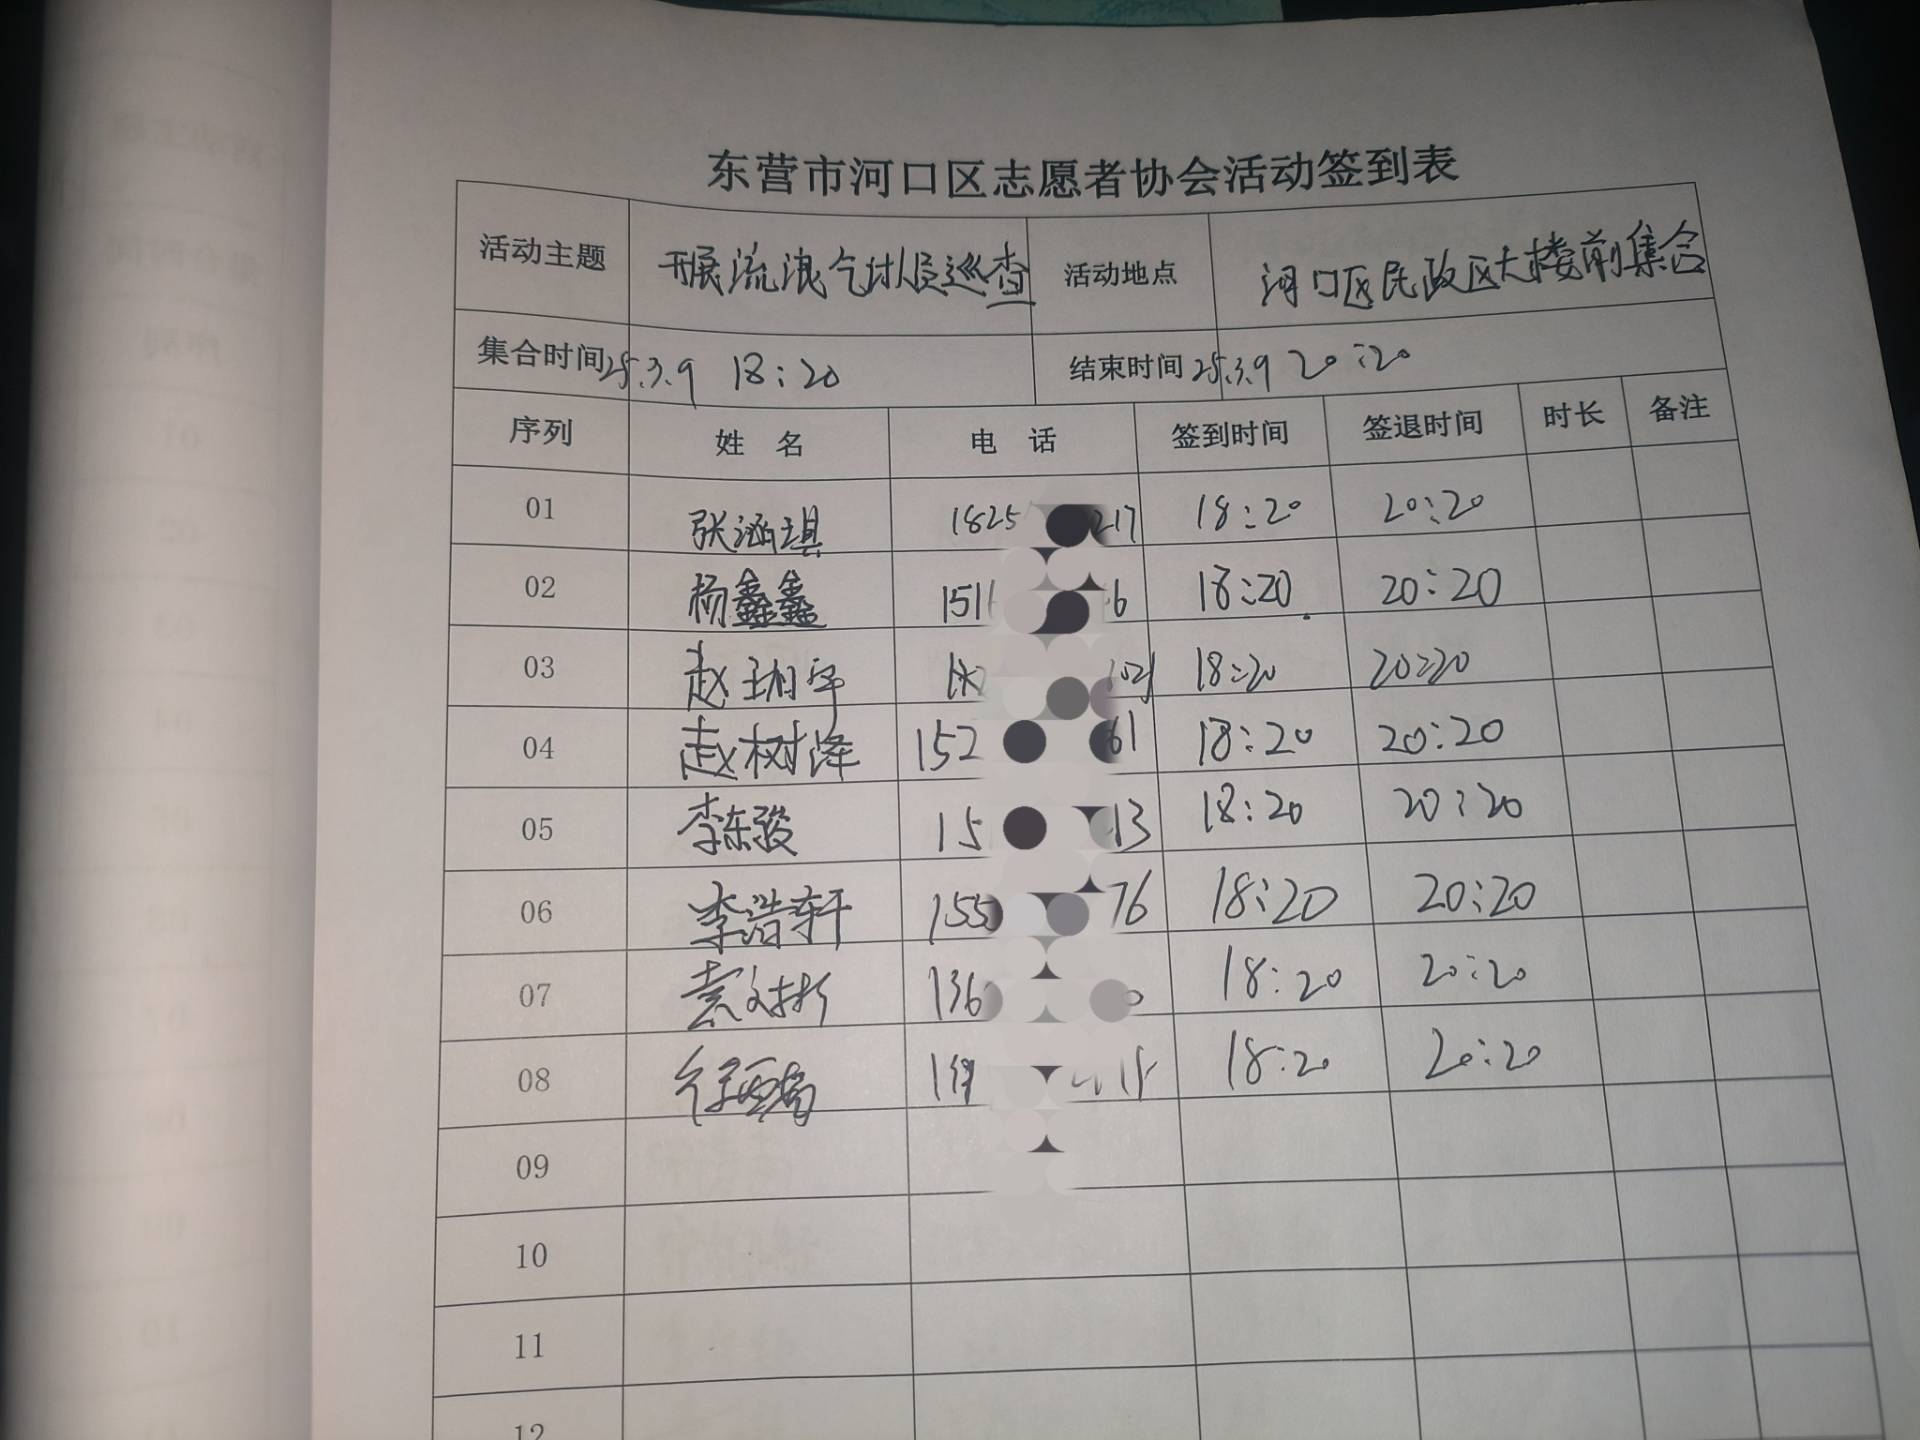 东营市河口区志愿者协会活动签到表
活动主题 开展流浪乞讨人员巡查 活动地点 河口区民政区大楼前集合
集合时间 25.3.9 18:20 结束时间 25.3.9 20:20
序列 姓 名 电 话 签到时间 签退时间 时长 备注
01 张涵琪 1825 217 18:20 20:20
02 杨鑫鑫 151 6 18:20 20:20
03 赵珊宇 18:20 20:20
04 赵树泽 152 61 18:20 20:20
05 李东骏 15 13 18:20 20:20
06 李浩轩 155 76 18:20 20:20
07 136 18:20 20:20
08 18:20 20:20
09
10
11
12